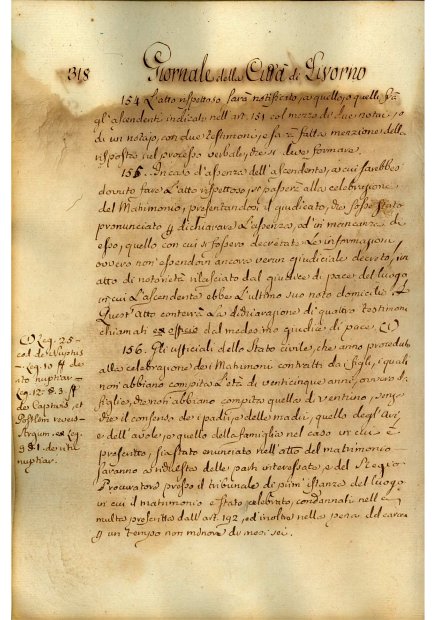 318 Giornale della Città di Livorno
154 L'atto rispettoso sarà notificato, a quello, o quelli fra
gl'ascendenti indicati nell'art. 151 col mezzo di due notai, o
di un notajo, con due testimoni, e sarà fatta menzione della
risposta nel processo verbale, che si deve formare.
155. In caso d'assenza dell'ascendente, a cui sarebbe
dovuto fare l'atto rispettoso, si passerà alla celebrazione
del Matrimonio, presentandosi il giudicato, che fosse stato
pronunciato p dichiarare l'assenza, od in mancanza di
esso, quello con cui si fossero decretate le informazioni,
ovvero non essendovi ancora verun giudiciale decreto, un
atto di notorietà rilasciato dal giudice di pace del luogo
in cui l'ascendente ebbe l'ultimo suo noto domicilio.
Quest'atto conterrà la dichiarazione di quattro testimoni
chiamati ex officio dal medesimo giudice di pace. (1)
156. Gli ufficiali dello Stato civile, che anno proceduto
alla celebrazione dei Matrimoni contratti da figli, i quali
non abbiano compita l'età di venticinque anni, ovvero da
figlie, che non abbiano compita quella di ventuno, senza
che il consenso dei padri, e delle madri, quello degl'Avi,
e dell'avole, o quello della famiglia nel caso in cui è
prescritto, sia stato enunciato nell'atto del matrimonio
saranno a richiesta delle parti interessate, e del Regio
Procuratore presso il tribunale di prim'istanza del luogo
in cui il matrimonio è stato celebrato, condannati nella
multa prescritta dall'art. 192, ed inoltre nella pena del carcere
p un tempo non minore di mesi sei.
(1) Leg. 25
cod. de Nuptiis
Leg. 10 ff de
ritu nuptiar.
Leg. 12. § 3. ff
de Captivis, et
Postlim revers
Leg.
9 § 1. de ritu
nuptiar.